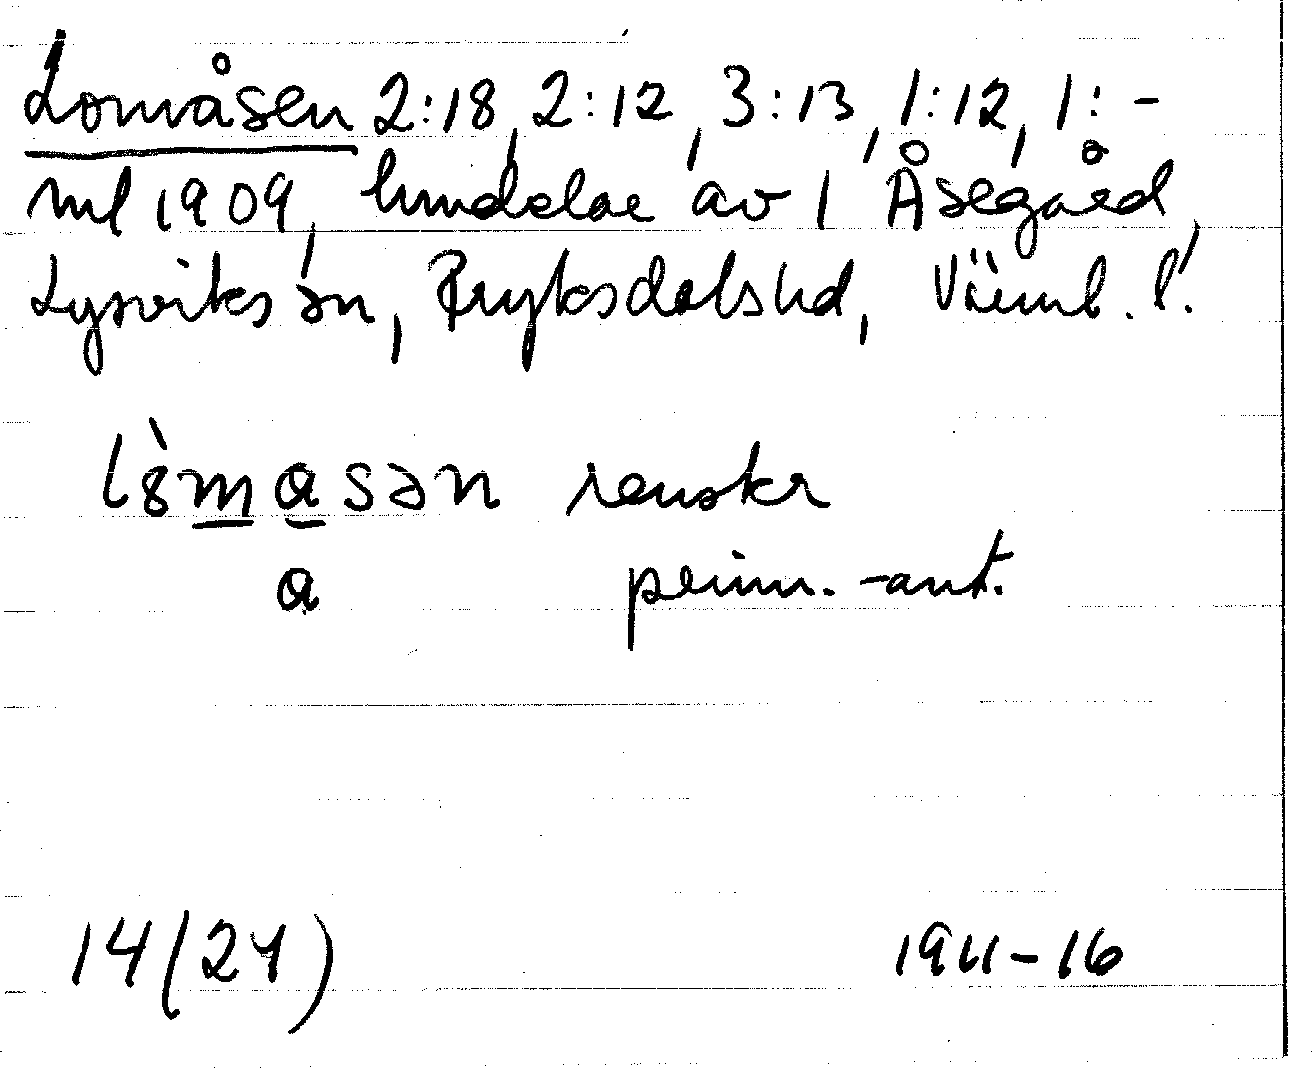 Lomåsen 2:18, 2:12, 3:13, 1:12, 1:-
ml 1909, hmdelar av 1 Åsegård,
Lysviks sn, Fryksdals hd, Värml. l.
lò̀masən renskr
a prim. -ant.
14(24) 1911-16